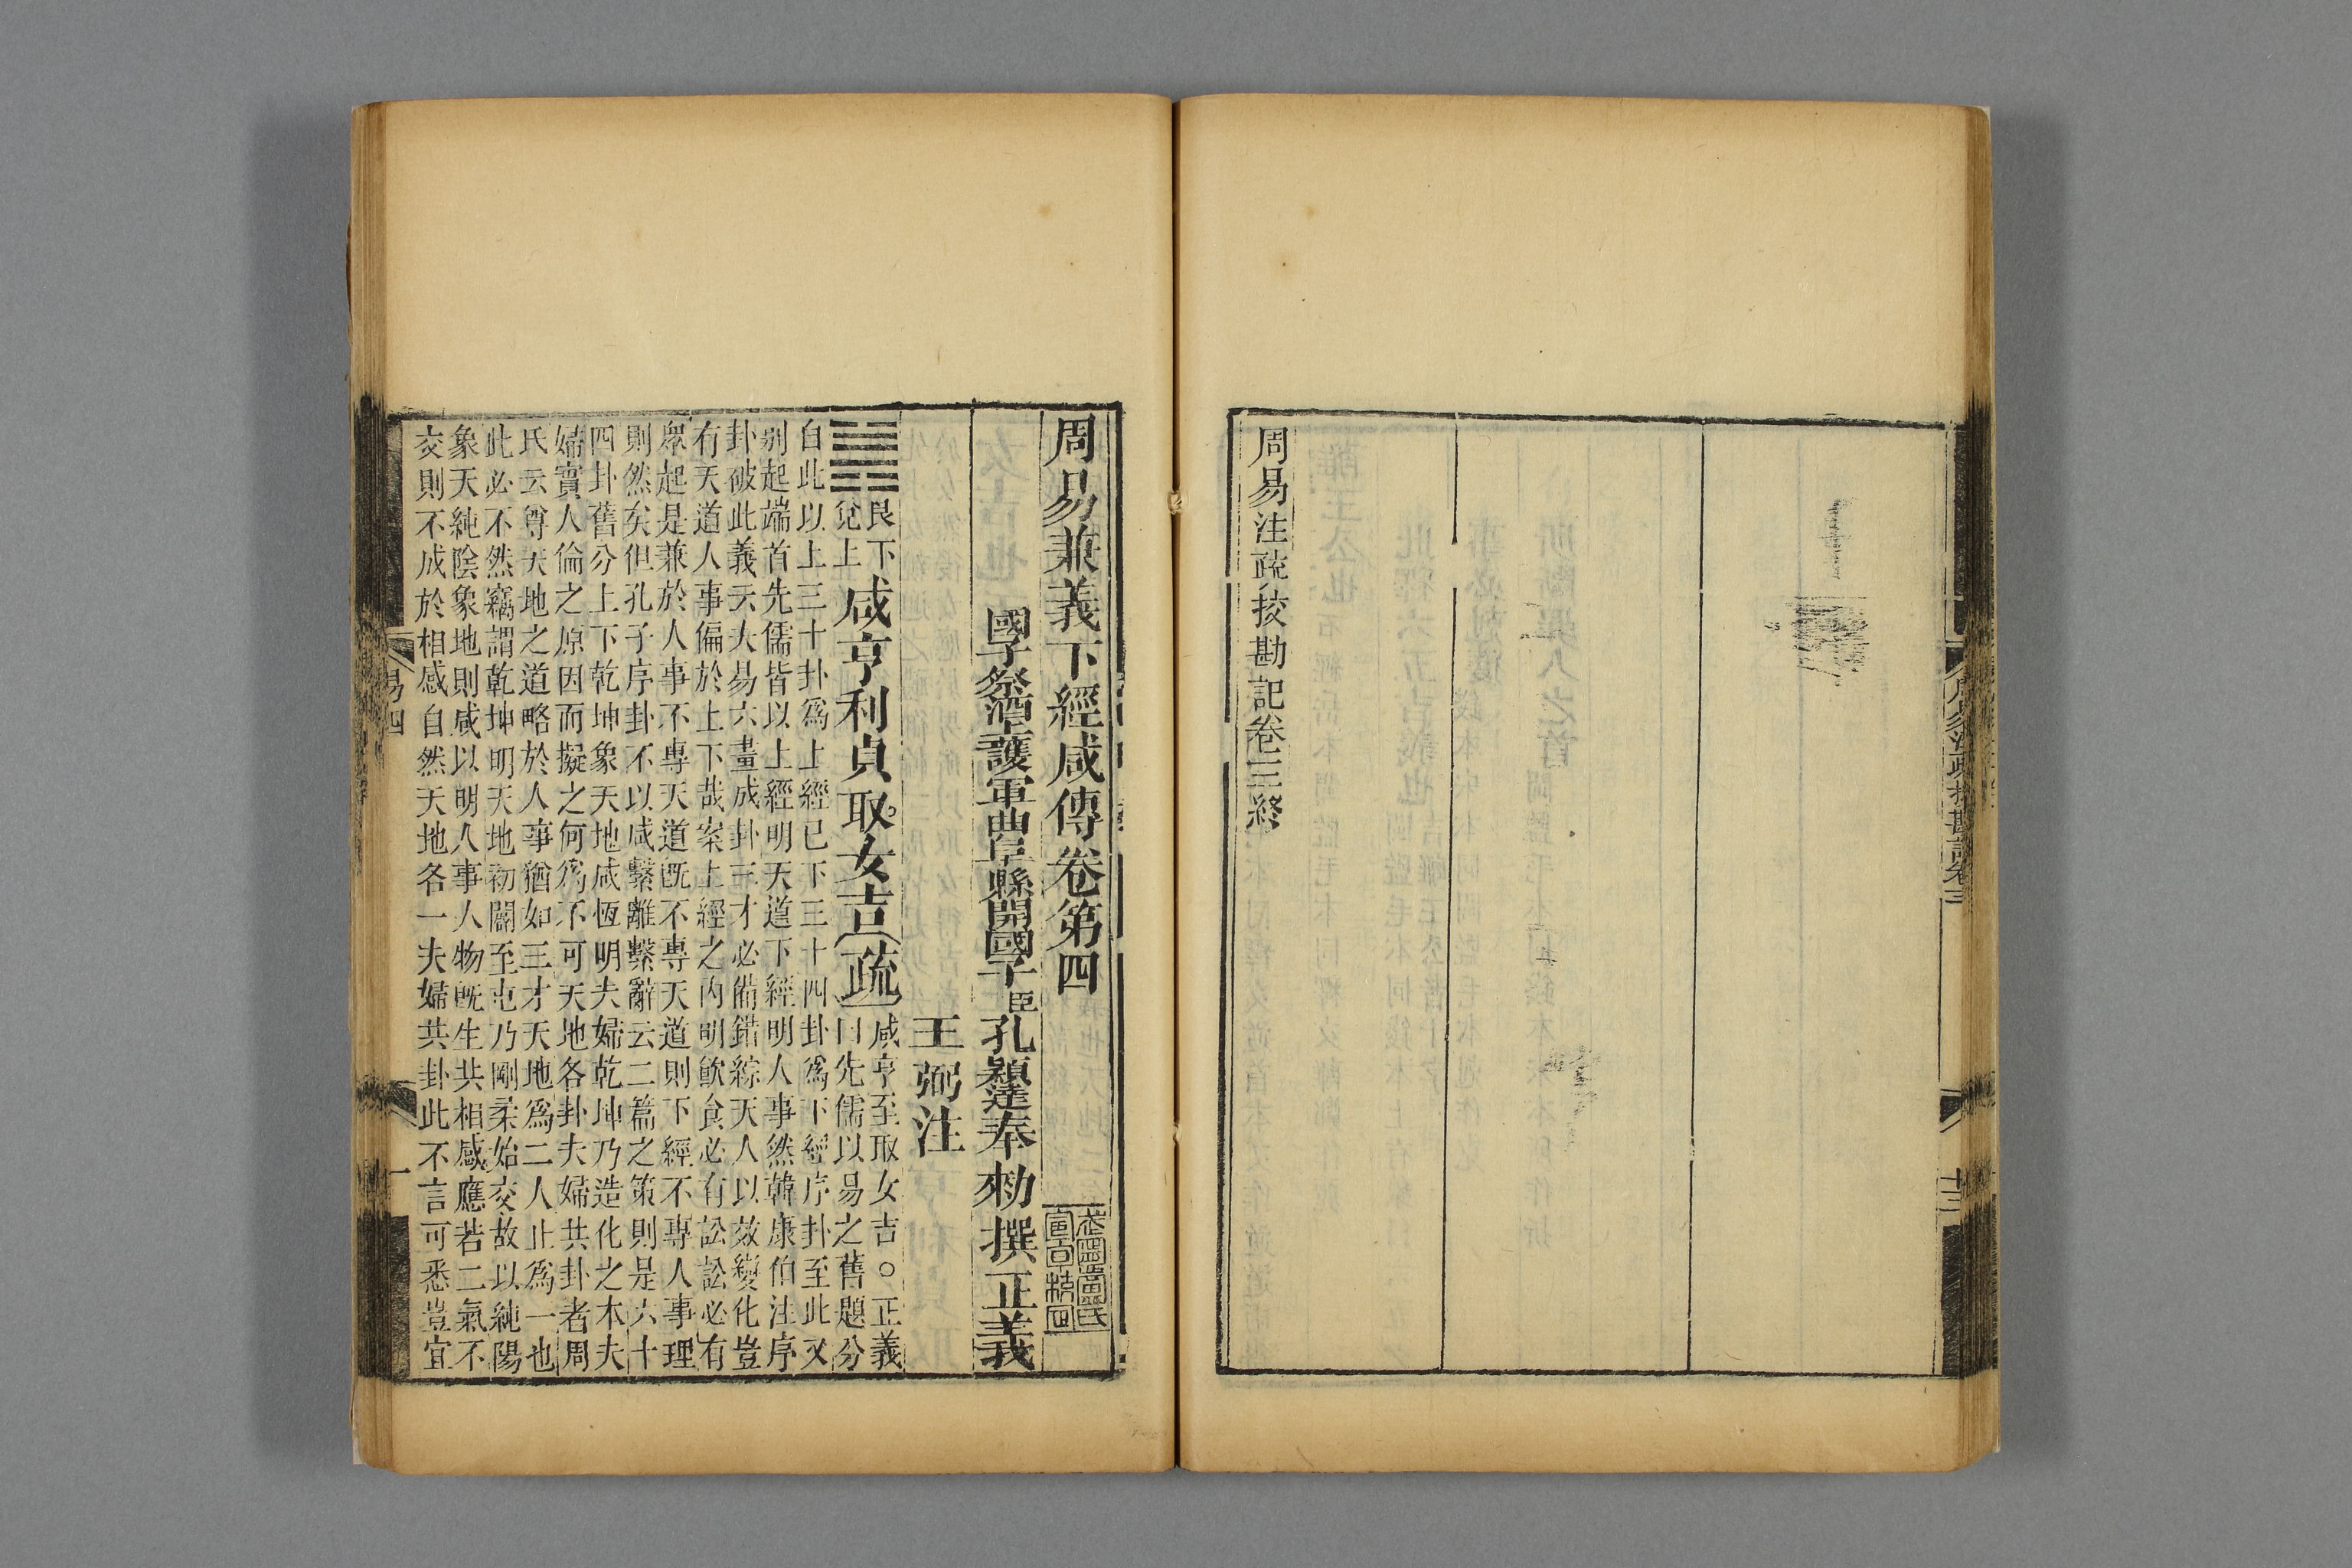 周易注疏挍勘記卷三終
周易注疏挍勘記卷三
十三
周易兼義下經咸傳卷第四
國子祭酒上護軍曲阜縣開國子臣孔穎達奉勑撰正義
王弼注
艮下
兌上
咸亨利貞取女吉
疏
咸亨至取女吉○正義
曰先儒以易之舊題分
自此以上三十卦爲上經已下三十四卦爲下經序卦至此又
別起端首先儒皆以上經明天道下經明人事然韓康伯注序
卦破此義云夫易六畫成卦三才必備錯綜天人以效變化豈
有天道人事偏於上下哉案上經之內明飮食必有訟訟必有
眾起是兼於人事不專天道旣不專天道則下經不專人事理
則然矣但孔子序卦不以咸繫離繫辭云二篇之策則是六十
四卦舊分上下乾坤象天地咸恆明夫婦乾坤乃造化之本夫
婦實人倫之原因而擬之何爲不可天地各卦夫婦共卦者周
氏云尊天地之道略於人事猶如三才天地爲二人止爲一也
此必不然竊謂乾坤明天地初闢至屯乃剛柔始交故以純陽
象天純陰象地則咸以明人事人物旣生共相感應若二氣不
交則不成於相感自然天地各一夫婦共卦此不言可悉豈宜
易四
一